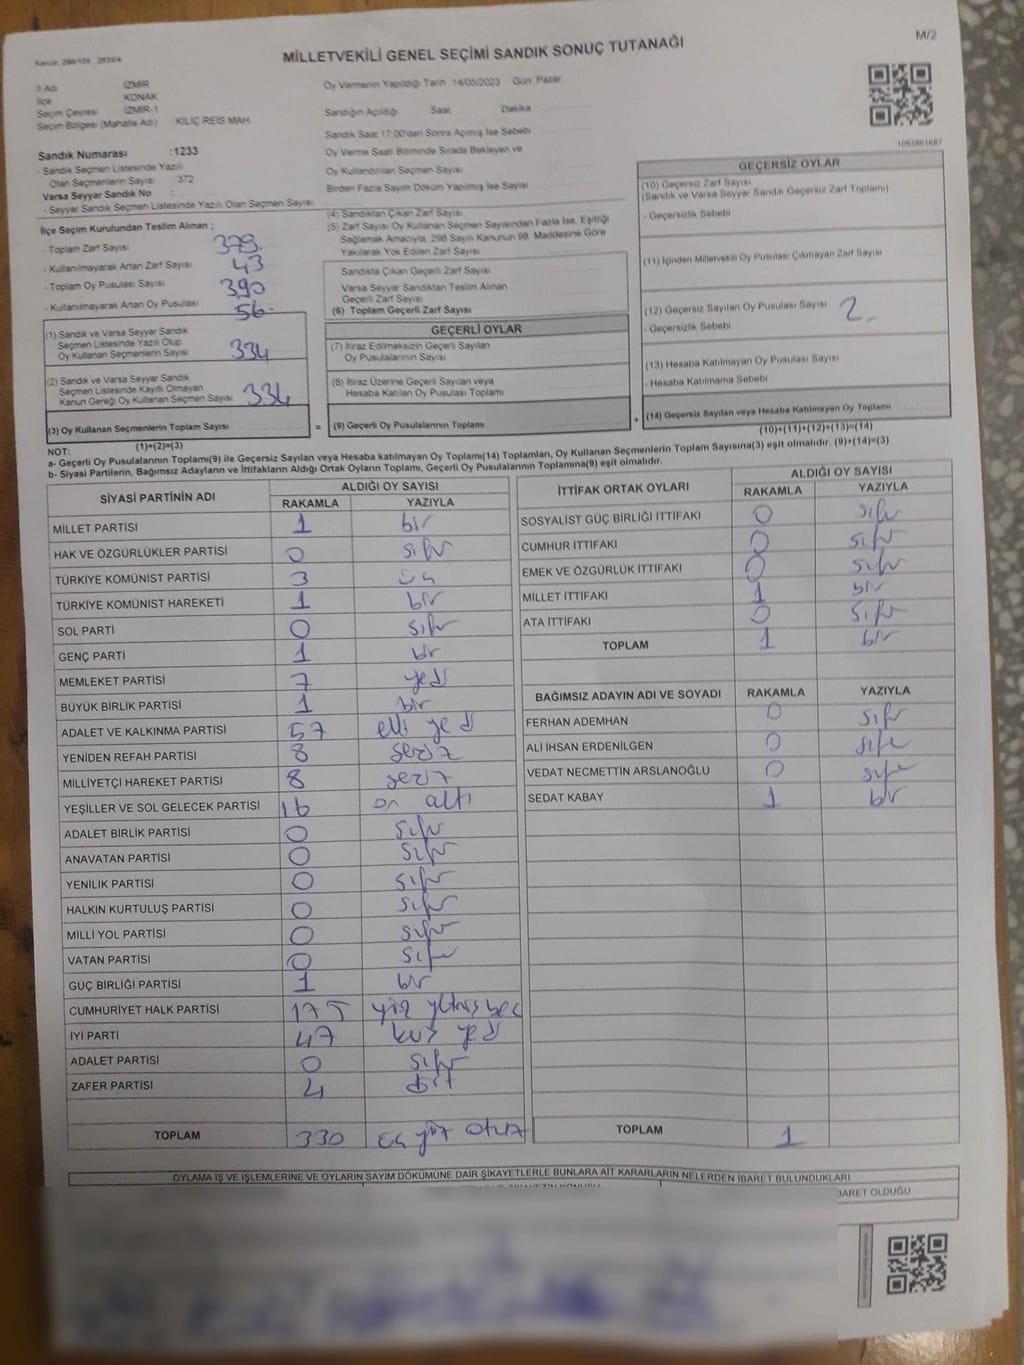 M/2
MİLLETVEKİLİ GENEL SEÇİMİ SANDIK SONUÇ TUTANAĞI
İl Adı İZMİR
İlçe KONAK
Seçim Çevresi İZMİR-1
Seçim Bölgesi (Mahalle Adı) KILIÇ REİS MAH.
Sandık Numarası :1233
- Sandık Seçmen Listesinde Yazılı
Olan Seçmenlerin Sayısı 372
Varsa Seyyar Sandık No :
- Seyyar Sandık Seçmen Listesinde Yazılı Olan Seçmen Sayısı:
Oy Vermenin Yapıldığı Tarih 14/05/2023 Gün: Pazar
Sandığın Açıldığı Saat Dakika
Sandık Saat 17:00'den Sonra Açılmış İse Sebebi
Oy Verme Saati Bitiminde Sırada Bekleyen ve
Oy Kullandırılan Seçmen Sayısı
Birden Fazla Sayım Döküm Yapılmış İse Sayısı
İlçe Seçim Kurulundan Teslim Alınan ;
- Toplam Zarf Sayısı
- Kullanılmayarak Artan Zarf Sayısı 43
- Toplam Oy Pusulası Sayısı 390
- Kullanılmayarak Artan Oy Pusulası 56
(1) Sandık ve Varsa Seyyar Sandık
Seçmen Listesinde Yazılı Olup
Oy Kullanan Seçmenlerin Sayısı 334
(2) Sandık ve Varsa Seyyar Sandık
Seçmen Listesinde Kayıtlı Olmayan
Kanun Gereği Oy Kullanan Seçmen Sayısı 334
(3) Oy Kullanan Seçmenlerin Toplam Sayısı =
(1)+(2)=(3)
(4) Sandıktan Çıkan Zarf Sayısı
(5) Zarf Sayısı Oy Kullanan Seçmen Sayısından Fazla İse, Eşitliği
Sağlamak Amacıyla, 298 Sayılı Kanunun 98. Maddesine Göre
Yakılarak Yok Edilen Zarf Sayısı
Sandıkta Çıkan Geçerli Zarf Sayısı
Varsa Seyyar Sandıktan Teslim Alınan
Geçerli Zarf Sayısı
(6) Toplam Geçerli Zarf Sayısı
GEÇERLİ OYLAR
(7) İtiraz Edilmeksizin Geçerli Sayılan
Oy Pusulalarının Sayısı
(8) İtiraz Üzerine Geçerli Sayılan veya
Hesaba Katılan Oy Pusulası Toplamı
(9) Geçerli Oy Pusulalarının Toplamı +
GEÇERSİZ OYLAR
(10) Geçersiz Zarf Sayısı
(Sandık ve Varsa Seyyar Sandık Geçersiz Zarf Toplamı)
- Geçersizlik Sebebi
(11) İçinden Milletvekili Oy Pusulası Çıkmayan Zarf Sayısı
(12) Geçersiz Sayılan Oy Pusulası Sayısı 2
- Geçersizlik Sebebi
(13) Hesaba Katılmayan Oy Pusulası Sayısı
- Hesaba Katılmama Sebebi
(14) Geçersiz Sayılan veya Hesaba Katılmayan Oy Toplamı
(10)+(11)+(12)+(13)=(14)
NOT:
a- Geçerli Oy Pusulalarının Toplamı(9) ile Geçersiz Sayılan veya Hesaba katılmayan Oy Toplamı(14) Toplamları, Oy Kullanan Seçmenlerin Toplam Sayısına(3) eşit olmalıdır. (9)+(14)=(3)
b- Siyasi Partilerin, Bağımsız Adayların ve İttifakların Aldığı Ortak Oyların Toplamı, Geçerli Oy Pusulalarının Toplamına(9) eşit olmalıdır.
SİYASİ PARTİNİN ADI ALDIĞI OY SAYISI
RAKAMLA YAZIYLA
MİLLET PARTİSİ 1 bir
HAK VE ÖZGÜRLÜKLER PARTİSİ 0 sıfır
TÜRKİYE KOMÜNİST PARTİSİ 3 üç
TÜRKİYE KOMÜNİST HAREKETİ 1 bir
SOL PARTİ 0 sıfır
GENÇ PARTİ 1 bir
MEMLEKET PARTİSİ 7 yedi
BÜYÜK BİRLİK PARTİSİ 1 bir
ADALET VE KALKINMA PARTİSİ 57 elli yedi
YENİDEN REFAH PARTİSİ 8 sekiz
MİLLİYETÇİ HAREKET PARTİSİ 8 sekiz
YEŞİLLER VE SOL GELECEK PARTİSİ 16 on altı
ADALET BİRLİK PARTİSİ 0 sıfır
ANAVATAN PARTİSİ 0 sıfır
YENİLİK PARTİSİ 0 sıfır
HALKIN KURTULUŞ PARTİSİ 0 sıfır
MİLLİ YOL PARTİSİ 0 sıfır
VATAN PARTİSİ 0 sıfır
GÜÇ BİRLİĞİ PARTİSİ 1 bir
CUMHURİYET HALK PARTİSİ 175 yüz yetmiş beş
İYİ PARTİ 47 kırk yedi
ADALET PARTİSİ 0 sıfır
ZAFER PARTİSİ 4 dört
TOPLAM 330 üç yüz otuz
İTTİFAK ORTAK OYLARI ALDIĞI OY SAYISI
RAKAMLA YAZIYLA
SOSYALİST GÜÇ BİRLİĞİ İTTİFAKI 0 sıfır
CUMHUR İTTİFAKI 0 sıfır
EMEK VE ÖZGÜRLÜK İTTİFAKI 0 sıfır
MİLLET İTTİFAKI 1 bir
ATA İTTİFAKI 0 sıfır
TOPLAM 1 bir
BAĞIMSIZ ADAYIN ADI VE SOYADI RAKAMLA YAZIYLA
FERHAN ADEMHAN 0 sıfır
ALİ İHSAN ERDENİLGEN 0 sıfır
VEDAT NECMETTİN ARSLANOĞLU 0 sıfır
SEDAT KABAY 1 bir
TOPLAM 1
OYLAMA İŞ VE İŞLEMLERİNE VE OYLARIN SAYIM DÖKÜMÜNE DAİR ŞİKAYETLERLE BUNLARA AİT KARARLARIN NELERDEN İBARET BULUNDUKLARI
İBARET OLDUĞU